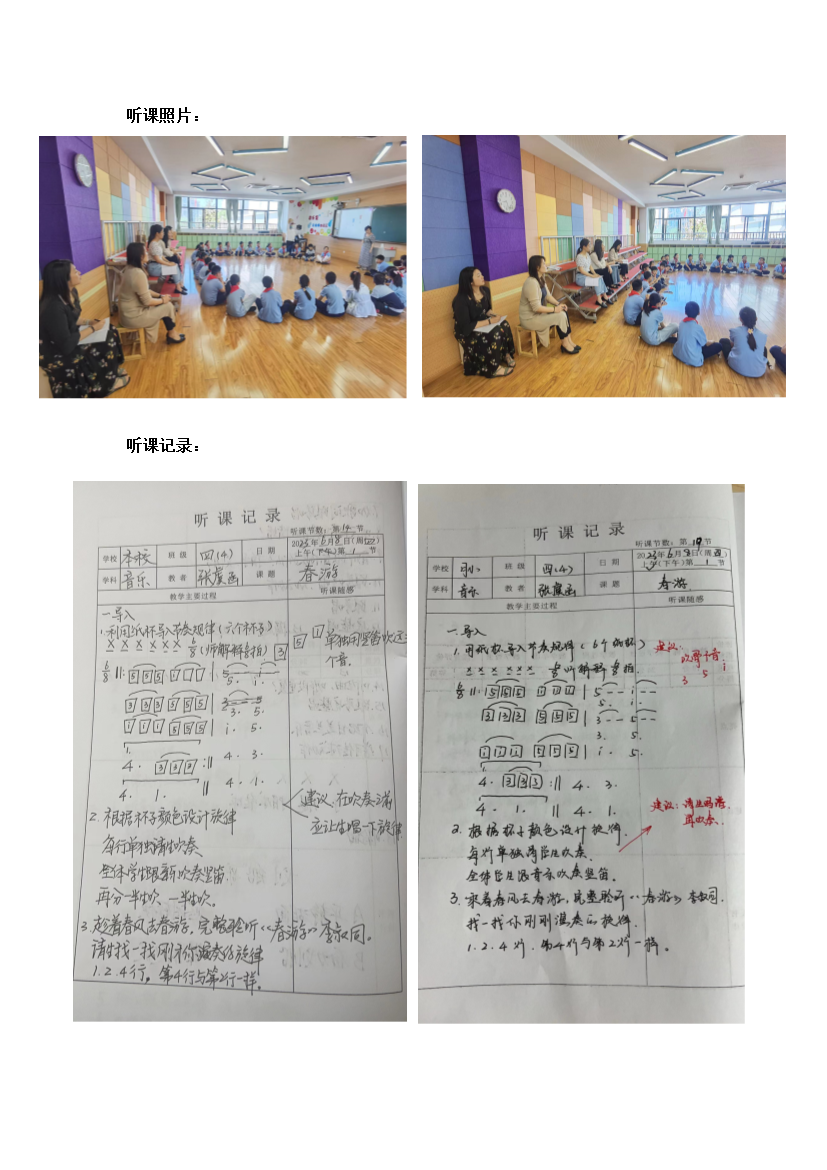 听课照片：
听课记录：
听课记录
听课节数：第14节
学校 本校 班级 四(4) 日期 2023年6月8日(周四)
上午(下午)第1节
学科 音乐 教者 张虞函 课题 春游
教学主要过程 听课随感
一.导入
1.利用纸杯导入节奏规律(六个杯子)
X X X X X X 6/8(师解释6/8拍)
3 5 i 单独用竖笛吹这三个音.
6/8 ||: 5 5 5 i i i | 5. i.
3 3 3 5 5 5 | 3. 5.
i i i 5 5 5 | i. 5.
1.
4. 3 3 3 :|| 4. 3.
4. 1. || 4. 1.
2.根据杯子颜色设计旋律
每行单独请生吹奏
全体学生跟着琴吹奏竖笛.
再分一半生吹,一半生吹.
建议:在吹奏之前
应让生唱一下旋律
3.趁着春风去春游,完整聆听《春游》李叔同。
请生找一找刚才你演奏的旋律
1.2.4行，第4行与第2行一样。
听课记录
听课节数：第19节
学校 班级 四(4) 日期 2023年6月8日(周四)
上午(下午)第1节
学科 音乐 教者 张虞函 课题 春游
教学主要过程 听课随感
一.导入
1.用纸杯导入节奏规律(6个纸杯)
X X X X X X 6/8 师解释6/8拍.
建议:
吹骨干音
3 5 i
6/8 ||: 5 5 5 i i i | 5 - - i - -
3 3 3 5 5 5 | 3 - - 5 - -
3. 5.
i i i 5 5 5 | i. 5.
1.
4. 3 3 3 :|| 4. 3.
4. 1. || 4. 1.
2.根据杯子颜色设计旋律.
每行单独请学生吹奏.
全体学生跟音乐吹奏竖笛.
建议:请生唱谱
再吹奏.
3.乘着春风去春游,完整聆听《春游》李叔同.
找一找你刚刚演奏的旋律.
1.2.4行.第4行与第2行一样.